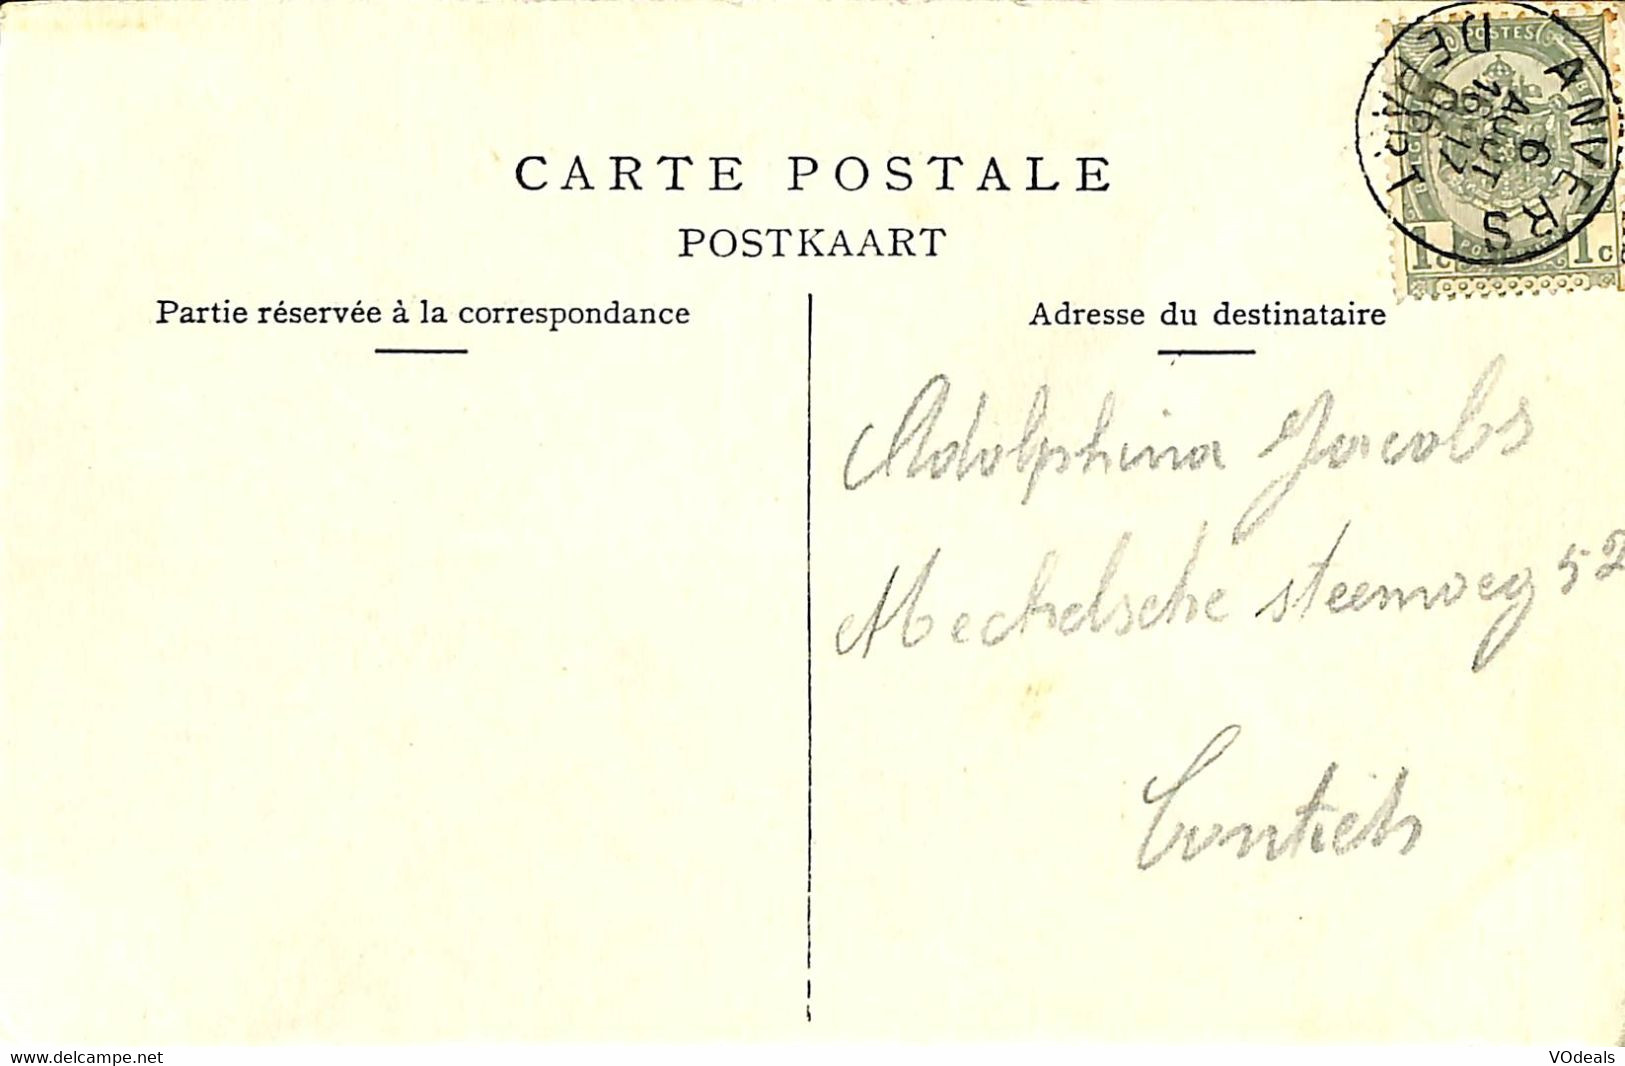 CARTE POSTALE
POSTKAART
Partie réservée à la correspondance
Adresse du destinataire
POSTES
ANVERS
DÉPART
6
AOUT
1c
1c
Adolphina Jacobs
Mechelsche steenweg 52
Contich
www.delcampe.net
VOdeals